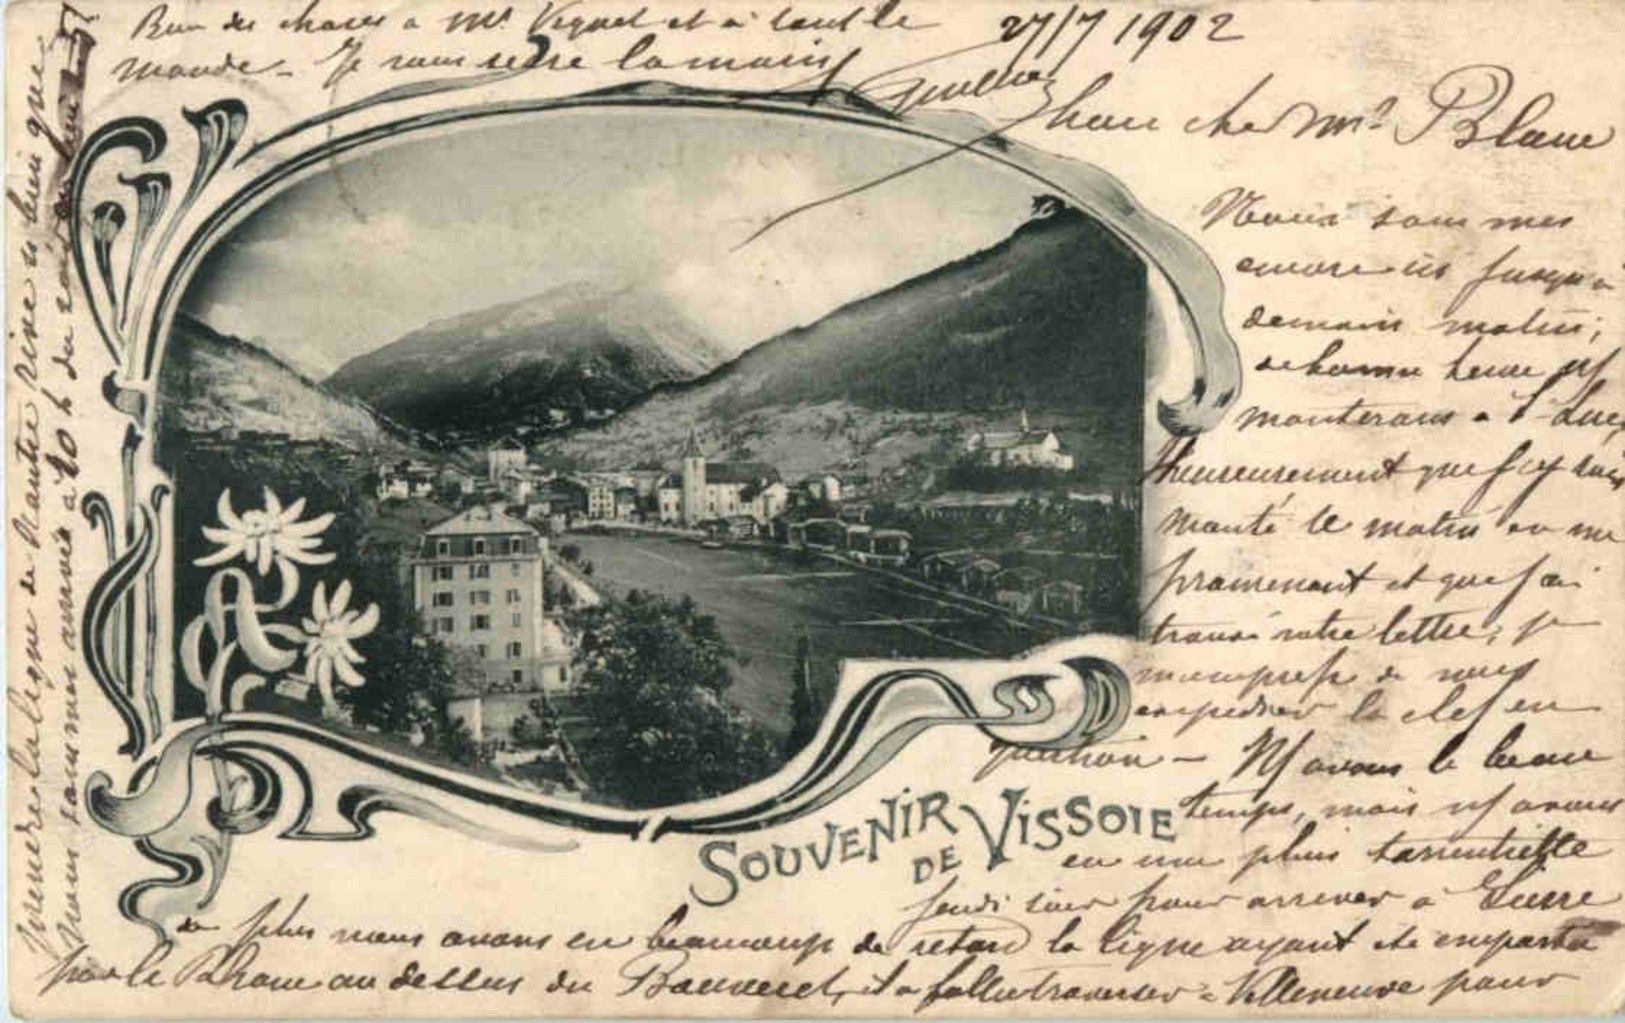 27/7 1902
Mon cher Mr Blanc
Nous sommes
encore ici jusqu'à
demain matin,
de bonne heure ns
monterons à
heureusement que je suis
monté le matin en me
promenant et que j'ai
trouvé votre lettre, je
m'empresse de vous
expédier la clef en
question - Ns avons le beau
temps, mais ns avons
eu une pluie torrentielle
jeudi soir pour arriver à Sierre
de plus nous avons eu beaucoup de retard la ligne ayant été emportée
par le Rhône au dessus du Bouveret, il a fallu traverser à Villeneuve pour
joindre la ligne de l'autre rive si bien que
nous sommes arrivés à 10 h du soir au lieu de
Bien des choses à Mr et à tout le
monde - Je vous serre la main
SOUVENIR
DE VISSOIE